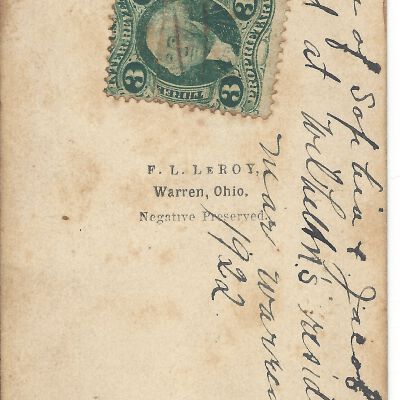 INTER. REVENUE
PROPRIETARY
3 3
F. L. LeROY,
Warren, Ohio.
Negative Preserved.
of Sophia & Jacob
at Wilhelm's resid
near Warren
1922